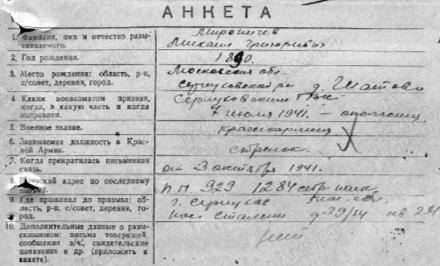 АНКЕТА
1. Фамилия, имя и отчество разыскиваемого. Миронычев
Михаил Григорьевич
2. Год рождения. 1890.
3. Место рождения: область, р-н, с/совет, деревня, город. Московская обл.
Серпуховской р-н д. Шатово
4. Каким военкоматом призван, когда, в какую часть и когда направлен. Серпуховским РВК
7 июля 1941. - ополченец
5. Военное звание. красноармеец
6. Занимаемая должность в Красной Армии. стрелок
7. Когда прекратилась письменная связь. от 3 октября 1941.
8. адрес по последнему п.п. 929 1284 стр. полк
9. Где проживал до призыва: область, р-н, с/совет, деревня, город. г. Серпухов Мос. обл.
д 39/14 кв 24
10. Дополнительные данные о разыскиваемом: письма товарищей, сообщения з/ч., свидетельские показания и др. (приложить к анкете). нет